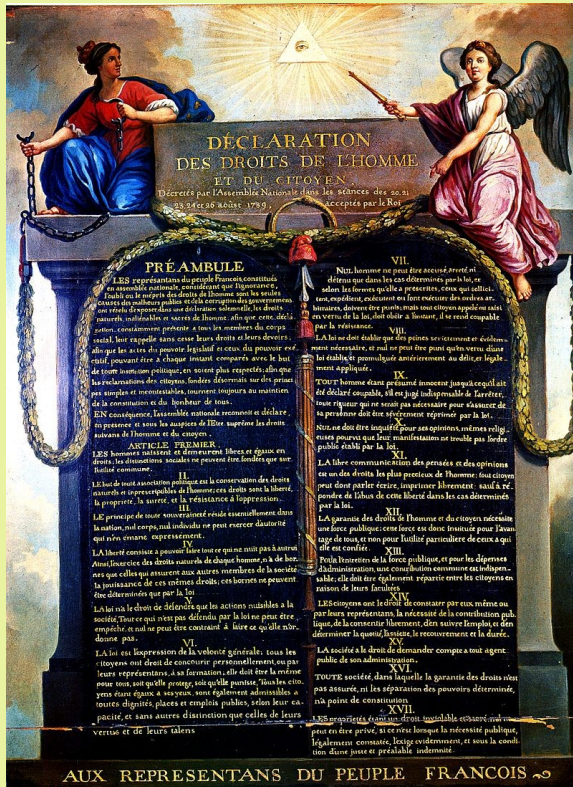 DÉCLARATION
DES DROITS DE L'HOMME
ET DU CITOYEN
Décretés par l'Assemblée Nationale dans les séances des 20, 21
23, 24 et 26 août 1789, acceptés par le Roi
PRÉAMBULE
LES représentans du peuple François, constitués
en assemblée nationale, considérant que l'ignorance,
l'oubli ou le mépris des droits de l'homme sont les seules
causes des malheurs publics et de la corruption des gouvernemens
ont résolu d'exposer dans une déclaration solemnelle, les droits
naturels, inaliénables et sacrés de l'homme; afin que cette décla
ration, constamment présente a tous les membres du corps
social, leur rappelle sans cesse leurs droits et leurs devoirs,
afin que les actes du pouvoir législatif et ceux du pouvoir exé
cutif, pouvant être a chaque instant comparés avec le but
de toute institution politique, en soient plus respectés; afin que
les réclamations des citoyens, fondées désormais sur des princi
pes simples et incontestables, tournent toujours au maintien
de la constitution et du bonheur de tous.
EN conséquence, l'assemblée nationale reconnoit et déclare,
en presence et sous les auspices de l'Etre suprême les droits
suivans de l'homme et du citoyen.
ARTICLE PREMIER.
LES hommes naissent et demeurent libres et égaux en
droits; les distinctions sociales ne peuvent être fondées que sur
l'utilité commune.
II.
LE but de toute association politique est la conservation des droits
naturels et imprescriptibles de l'homme; ces droits sont la liberté,
la propriété, la sureté, et la résistance à l'oppression.
III.
LE principe de toute souveraineté réside essentiellement dans
la nation, nul corps, nul individu ne peut exercer d'autorité
qui n'en émane expressement.
IV.
LA liberté consiste a pouvoir faire tout ce qui ne nuit pas à autrui
Ainsi, l'exercice des droits naturels de chaque homme, n'a de bor
nes que celles qui assurent aux autres membres de la société
la jouissance de ces mêmes droits; ces bornes ne peuvent
être déterminées que par la loi
V.
LA loi n'a le droit de défendre que les actions nuisibles a la
société. Tout ce qui n'est pas défendu par la loi ne peut être
empêché, et nul ne peut être contraint à faire ce qu'elle n'or-
donne pas.
VI.
LA loi est l'expression de la volonté générale; tous les
citoyens ont droit de concourir personnellement, ou par
leurs représentans, à sa formation; elle doit être la même
pour tous, soit qu'elle protege, soit qu'elle punisse. Tous les cito
yens étant égaux a ses yeux, sont également admissibles a
toutes dignités, places et emplois publics, selon leur ca
pacité, et sans autres distinction que celles de leurs
vertus et de leurs talens
VII.
NUL homme ne peut être accusé, arreté ni
détenu que dans les cas déterminés par la loi, et
selon les formes qu'elle a prescrites, ceux qui sollici
tent, expédient, exécutent ou font exécuter des ordres ar
bitraires, doivent être punis; mais tout citoyen appelé ou saisi
en vertu de la loi, doit obéir a l'instant, il se rend coupable
par la résistance.
VIII.
LA loi ne doit établir que des peines strictement et évidem-
ment nécessaire, et nul ne peut être puni qu'en vertu d'une
loi établie et promulguée antérieurement au délit, et légale
ment appliquée.
IX.
TOUT homme étant présumé innocent jusqu'à ce qu'il ait
été déclaré coupable, s'il est jugé indispensable de l'arrêter,
toute rigueur qui ne serait pas nécessaire pour s'assurer de
sa personne doit être sévèrement réprimée par la loi.
X.
NUL ne doit être inquiété pour ses opinions, mêmes religi
euses pourvu que leur manifestation ne trouble pas l'ordre
public établi par la loi.
XI.
LA libre communication des pensées et des opinions
est un des droits les plus precieux de l'homme; tout citoyen
peut dont parler écrire, imprimer librement: sauf à ré
pondre de l'abus de cette liberté dans les cas déterminés
par la loi.
XII.
LA garantie des droits de l'homme et du citoyen nécessite
une force publique; cette force est donc instituée pour l'avan
tage de tous, et non pour l'utilité particuliere de ceux a qui
elle est confiée.
XIII.
Pour l'entretien de la force publique, et pour les dépenses
d'administration, une contribution commune est indispen-
sable; elle doit être également répartie entre les citoyens en
raison de leurs facultées
XIV.
LES citoyens ont le droit de constater par eux même ou
par leurs représentans, la nécessité de la contribution pub-
lique, de la consentir librement, d'en suivre l'emploi, et d'en
déterminer la quotité, l'assiette, le recouvrement et la durée.
XV.
LA société a le droit de demander compte a tout agent
public de son administration.
XVI.
TOUTE société, dans laquelle la garantie des droits n'est
pas assurée, ni les séparation des pouvoirs déterminée,
n'a point de constitution
XVII.
LES propriétés étant un droit inviolable et sacré, nul ne
peut en être privé, si ce n'est lorsque la nécessité publique,
légalement constatée, l'exige évidemment, et sous la condi-
tion d'une juste et préalable indemnité.
AUX REPRESENTANS DU PEUPLE FRANCOIS